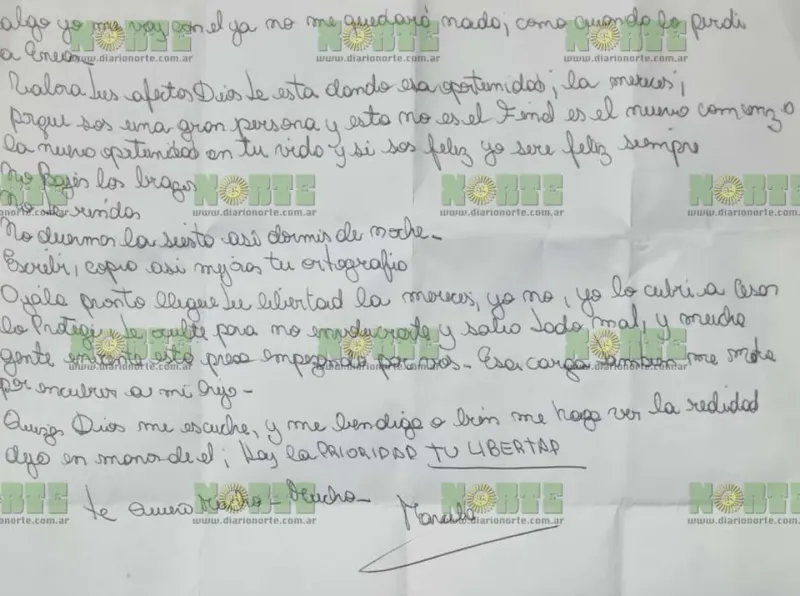 algo yo me voy con el ya no me quedará nada; como cuando lo perdi
a Eneas.
Valora tus afectos Dios te esta dando esa oportunidad; la mereces;
porque sos una gran persona y esta no es el Find es el nuevo comienzo
la nueva oportunidad en tu vida y si sos feliz yo sere feliz siempre
No bajes los brazos
No te rindas
No duermas la siesta asi dormis de noche-
Escribi, copia asi mejoras tu ortografia
Ojala pronto llegue tu libertad la mereces, yo no, yo lo cubri a Cesar
lo Protegi te oculte para no involucrarte y salio todo mal, y mucha
gente inocente esta presa empezando por vos- Esa carga tambien me mata
por encubrir a mi hijo-
Quizas Dios me escuche, y me bendiga o bien me haga ver la realidad
dejo en manos de el; Hoy la PRIORIDAD TU LIBERTAD
te Quiero Mucho- Mucho-
Marcela
NORTE
www.diarionorte.com.ar